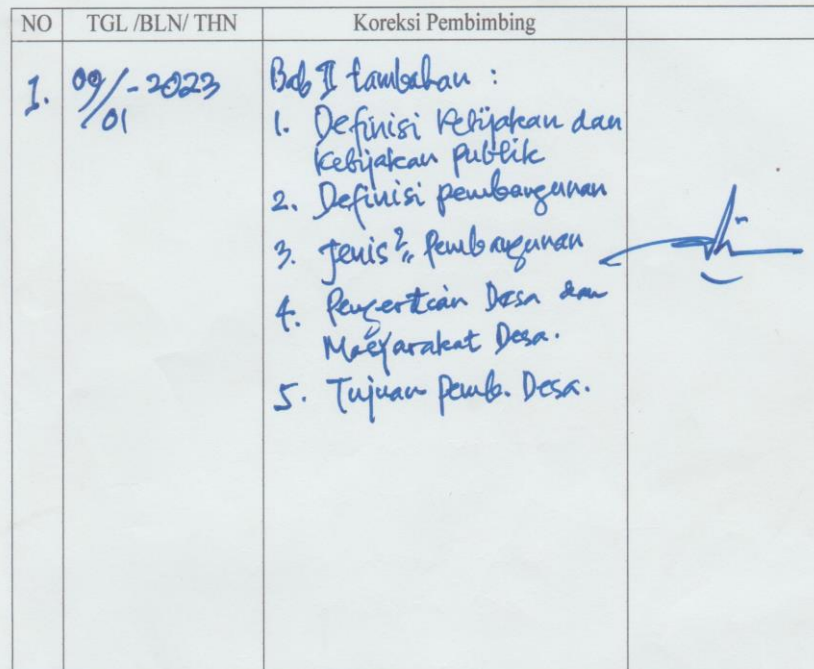 NO TGL /BLN/ THN Koreksi Pembimbing
1. 09/01 - 2023 Bab II tambahan :
1. Definisi Kebijakan dan
Kebijakan Publik
2. Definisi pembangunan
3. Jenis² Pembangunan
4. Pengertian Desa dan
Masyarakat Desa.
5. Tujuan Pemb. Desa.